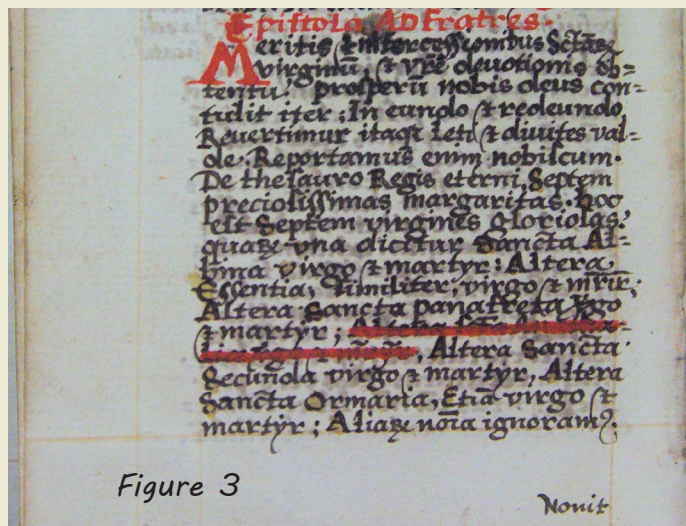 Epistola AD Fratres.
Meritis & intercessionibus Sctāꝝ
virginū, & vr̄e deuotionis ob=
tentu, prosperū nobis deus con=
tulit iter; In eundo & redeundo
Reuertimur itaqȝ leti & diuites val=
de. Reportamus enim nobiscum.
De thesauro Regis eterni, Septem
preciosissimas margaritas. hoc
est Septem virgines gloriosas.
quaꝝ vna dicitur Sancta Al=
bina virgo & martyr: Altera
Essentia, similiter, virgo & mrir̄;
Altera Sancta panafreta v̄go
& martyr; Altera
, Altera Sancta
Secunda virgo & martyr, Altera
Sancta Ormaria, Etiā virgo &
martyr; Aliaꝝ noīa ignoramꝰ.
Figure 3
Nouit